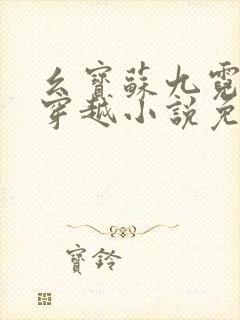 幺寶蘇九霓
穿越小說免
寶鈴